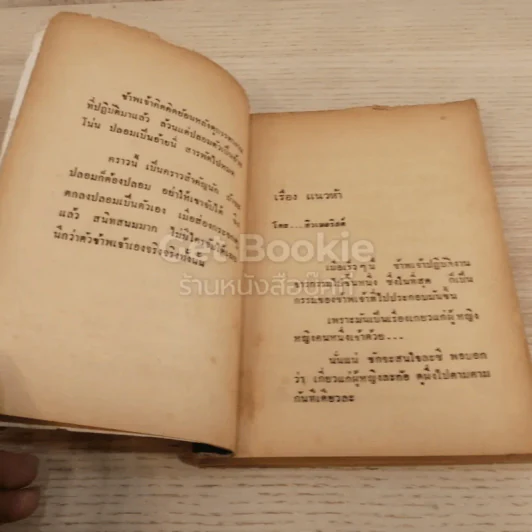 ข้าพเจ้าคิดคิดย้อนหลังดู
ที่ปฏิบัติมาแล้ว ล้วนแต่ปลอมตัวเป็น
โน่น ปลอมเป็นอ้ายนี่ สารพัด
คราวนี้ เป็นคราวสำคัญนัก
ปลอมก็ต้องปลอม อย่าให้เขาจับได้
ตกลงปลอมเป็นตัวเอง เมื่อส่อง
แล้ว สนิทสนมมาก
นึกว่าตัวข้าพเจ้าเองจริงๆ
เรื่อง แนวห้า
โดย...
เมื่อเร็วๆนี้ ข้าพเจ้าปฏิบัติงาน
จารกรรมไปชิ้นหนึ่ง ซึ่งในที่สุด ก็เป็น
กรรมของข้าพเจ้าที่ไปประกอบมันขึ้น
เพราะมันเป็นเรื่องเกี่ยวแก่ผู้หญิง
หญิงคนหนึ่งเข้าด้วย...
นั่นแน่ ชักจะสนใจละซี พอบอก
ว่า เกี่ยวแก่ผู้หญิงละก้อ หูผึ่งไปตามตาม
กันทีเดียวละ
Get Bookie
ร้านหนังสือบุ๊คกี้